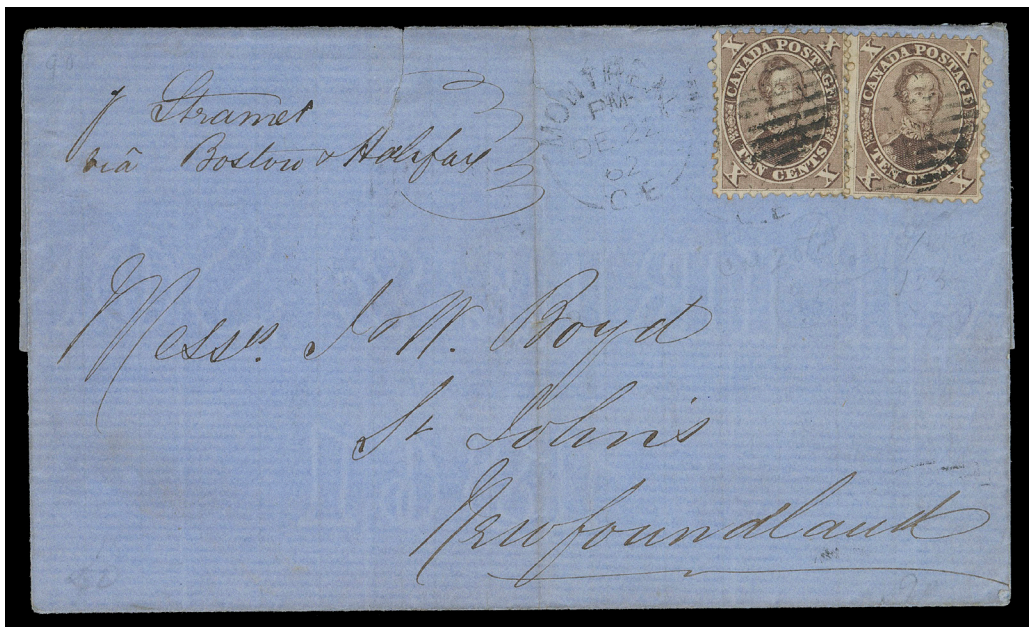 p Stramer
viâ Boston & Halifax
MONTRE
PM
DE 22
62
C.E
C.E
CANADA POSTAGE
TEN CENTS
X X X X
CANADA POSTAGE
TEN CENTS
X X X X
Messrs. J & W. Boyd
St Johns
Newfoundland